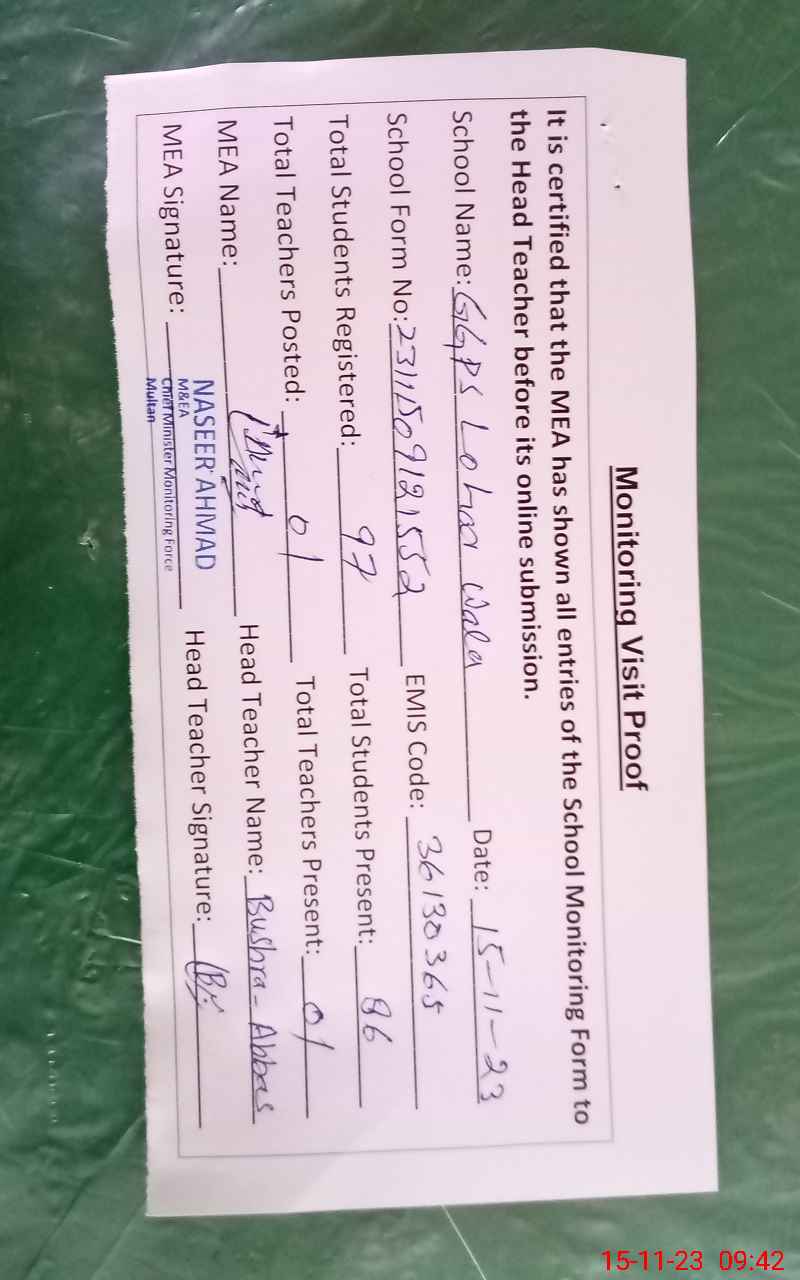 Monitoring Visit Proof
It is certified that the MEA has shown all entries of the School Monitoring Form to
the Head Teacher before its online submission.
School Name: GGPS Lohar Wala Date: 15-11-23
School Form No: EMIS Code: 36130365
Total Students Registered: 97 Total Students Present: 86
Total Teachers Posted: 01 Total Teachers Present: 01
MEA Name: Head Teacher Name: Bushra - Abbas
MEA Signature: Head Teacher Signature:
NASEER AHMAD
M&EA
Chief Minister Monitoring Force
Multan
15-11-23 09:42